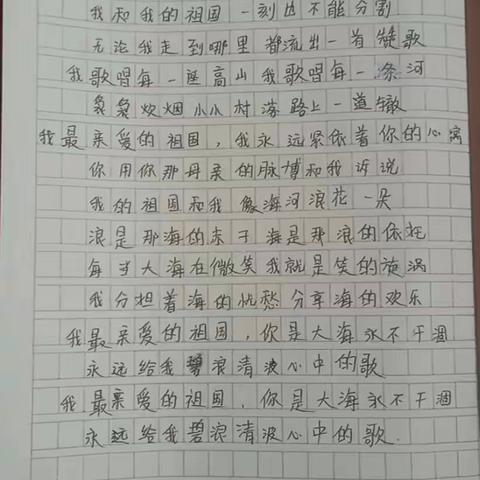 我和我的祖国 一刻也不能分割
无论我走到哪里 都流出一首赞歌
我歌唱每一座高山 我歌唱每一条河
袅袅炊烟 小小村落 路上一道辙
我最亲爱的祖国，我永远紧依着你的心窝
你用你那母亲的脉博和我诉说
我的祖国和我 像海河浪花一朵
浪是那海的赤子 海是那浪的依托
每当大海在微笑 我就是笑的旋涡
我分担着海的忧愁 分享海的欢乐
我最亲爱的祖国，你是大海永不干涸
永远给我碧浪清波心中的歌
我最亲爱的祖国，你是大海永不干涸
永远给我碧浪清波心中的歌.